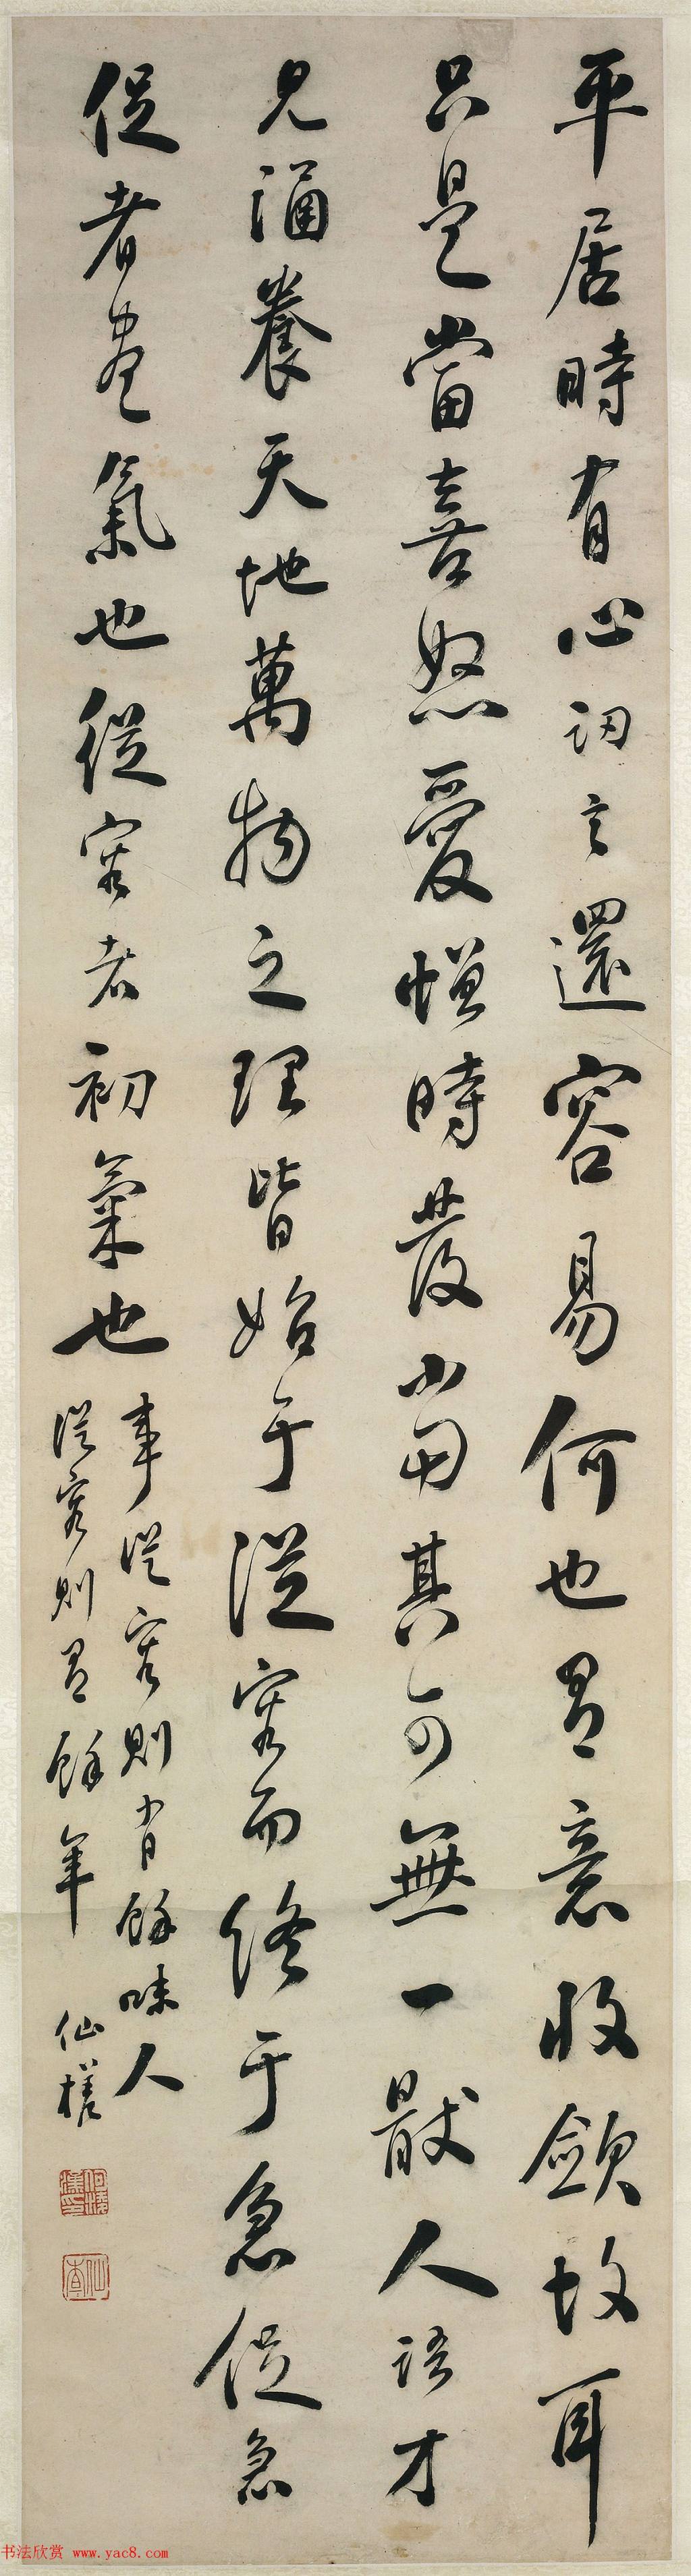 平居時有心訒言還容易何也有意收斂故耳
只是當喜怒愛憎時發當其可無一厭人語才
見涵養天地萬物之理皆始于從容而終于急促急
促者盡氣也從容者初氣也
事從容則有餘味人
從容則有餘年
仙槎
书法欣赏 www.yac8.com